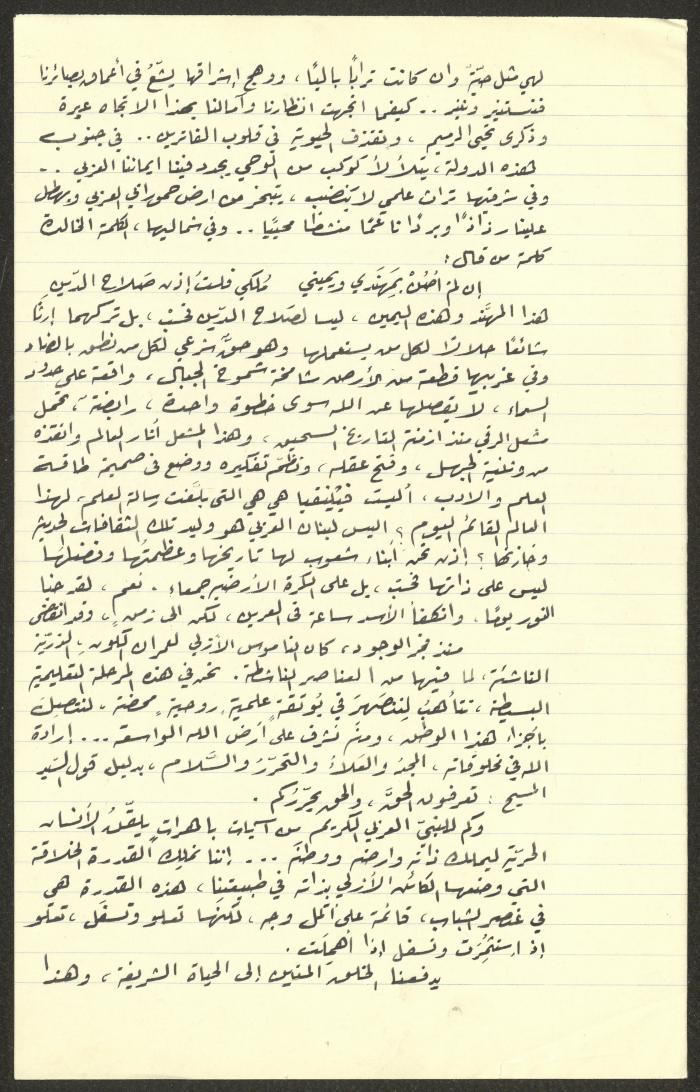 لهي مثل حيّة وان كانت ترابًا باليًا، ووهج إشراقها يشعّ في أعماق بصائرنا
فتستنير وتنير .. كيفما اتجهت انظارنا وآمالنا بهذا الاتجاه عبرة
وذكرى تحيي الرميم، وتقذف الحيوية في قلوب الفاترين .. في جنوب
هذه الدولة، يتلألأ كوكب من الوحي يجدد فينا ايماننا العربي ..
وفي شرقيها تراث علمي لا ينضب، يتبخر من ارض حمورابي العربي ويهطل
علينا رذاذًا وبردًا ناعمًا منشطًا محييًا .. وفي شماليها، الكلمة الخالدة
كلمة من قال:
إن لم أصُن بمهندي ويميني ملكي فلستُ إذن صَلاح الدّينِ
هذا المهنّد وهذه اليمين، ليسا لصَلاح الدّين فحسب، بل تركهما إرثًا
شائعًا حلالًا لكل من يستعملها وهو حقّ شرعي لكل من نطق بالضاد
وفي غربيها قطعة من الأرض شامخة شموخ الجبال، واقفة على حدود
السماء، لا يفصلها عن الله سوى خطوة واحدة، رابضة، تحمل
مشعل الرقي منذ ازمنة التاريخ السحيق، وهذا المشعل أنار العالم وانقذه
من وثنية الجهل، وفتح عقله، ونظّم تفكيره ووضع في صميمه طاقة
العلم والادب، أليست فينيقيا هي هي التي بلّغت رسالة العلم، لهذا
العالم القائم اليوم؟ اليس لبنان العربي هو وليد تلك الثقافات الحديثة
وخازنها؟ إذن نحن أبناء شعوب لها تاريخها وعظمتها وفضلها
ليس على ذاتها فحسب، بل على الكرة الأرضية جمعاء. نعم، لقد خبا
النور يومًا، وانكفأ الأسد ساعة في العرين، لكن الى زمنٍ، وقد انقضى
منذ فجر الوجود، كان الناموس الأزلي لعمران الكون، الذريّة
الناشئة، لما فيها من العناصر الناشطة. نحن في هذه المرحلة التعليمية
البسيطة، نتأهبُ لننصَهرَ في بُوتقةٍ علميةٍ روحيةٍ محضة، لنتصل
بأجزاء هذا الوطن، ومنه نشرف على أرض الله الواسعة ... إرادة
الله في مخلوقاته، المجدُ والعَلاءُ والتحرّرُ والسَّلام، بدليل قول السّيد
المسيح: تعرفون الحقَّ، والحق يحرّركم.
وكم للنبيّ العربي الكريم من آيات باهرات يلقّنُ الأنسان
الحريّةِ ليملك ذاته وارضه ووطنه ... إننا نملك القدرة الخلاقة
التي وضعها الكائن الأزلي بذاته في طبيعتنا، هذه القدرة هي
في عنصر الشباب، قائمة على أكمل وجه، لكنها تعلو وتسفل، تعلو
إذا استثمِرَت وتسفل إذا أهملَت.
يدفعنا الخلق المتين إلى الحياة الشريفة، وهذا